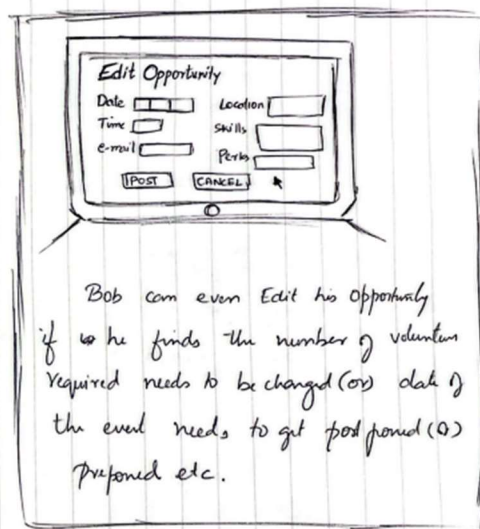 Edit Opportunity
Date
Time
e-mail
Location
Skills
Perks
POST
CANCEL
Bob can even Edit his opportunity
if he finds the number of volunteers
required needs to be changed (or) date of
the event needs to get postponed (or)
preponed etc.